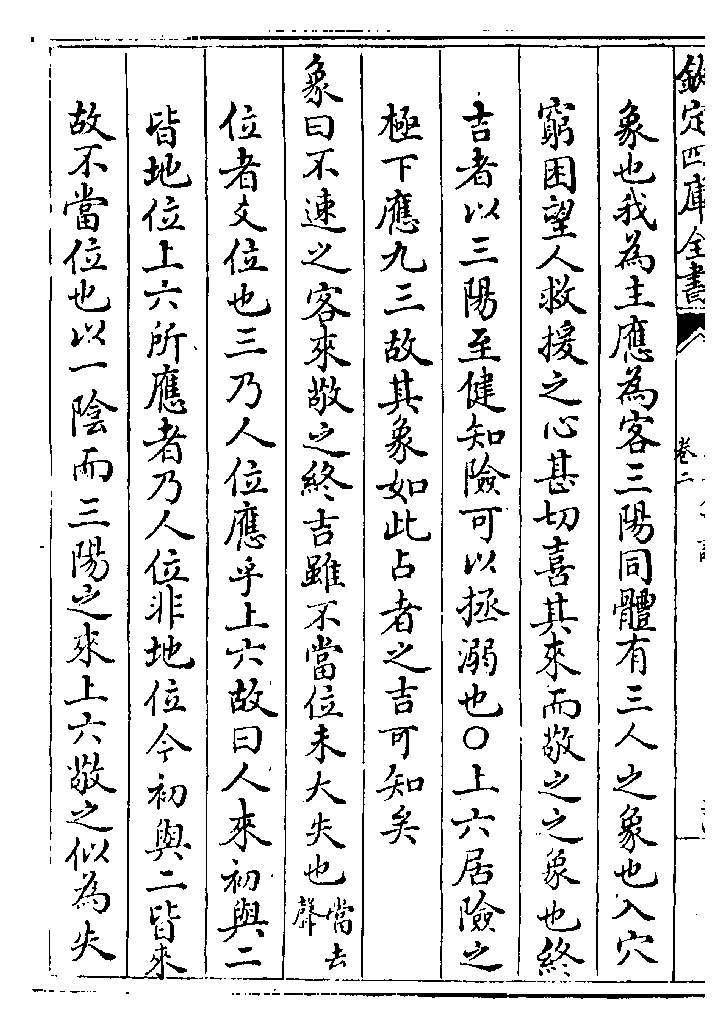 欽定四庫全書
卷二
象也我為主應為客三陽同體有三人之象也入穴
窮困望人救援之心甚切喜其來而敬之之象也終
吉者以三陽至健知險可以拯溺也○上六居險之
極下應九三故其象如此占者之吉可知矣
象曰不速之客來敬之終吉雖不當位未大失也當去聲
位者爻位也三乃人位應乎上六故曰人來初與二
皆地位上六所應者乃人位非地位今初與二皆來
故不當位也以一陰而三陽之來上六敬之似為失